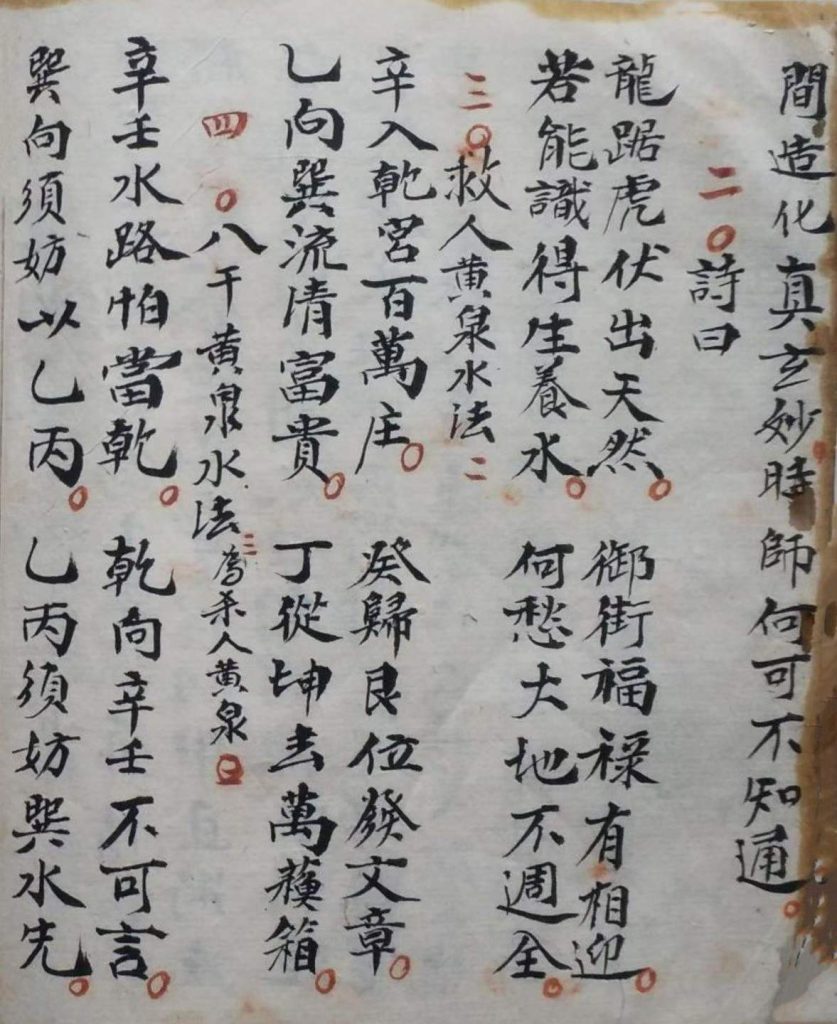 間造化真玄妙時師何可不知通。
二〇詩曰
龍踞虎伏出天然。御街福祿有相迎。
若能識得生養水。何愁大地不週全。
三〇救人黃泉水法二
辛入乾宮百萬庄。癸歸艮位發文章。
乙向巽流清富貴。丁從坤去萬箱。
四〇八干黃泉水法三為杀人黃泉
辛壬水路怕當乾。乾向辛壬不可言。
巽向須妨以乙丙。乙丙須妨巽水先。